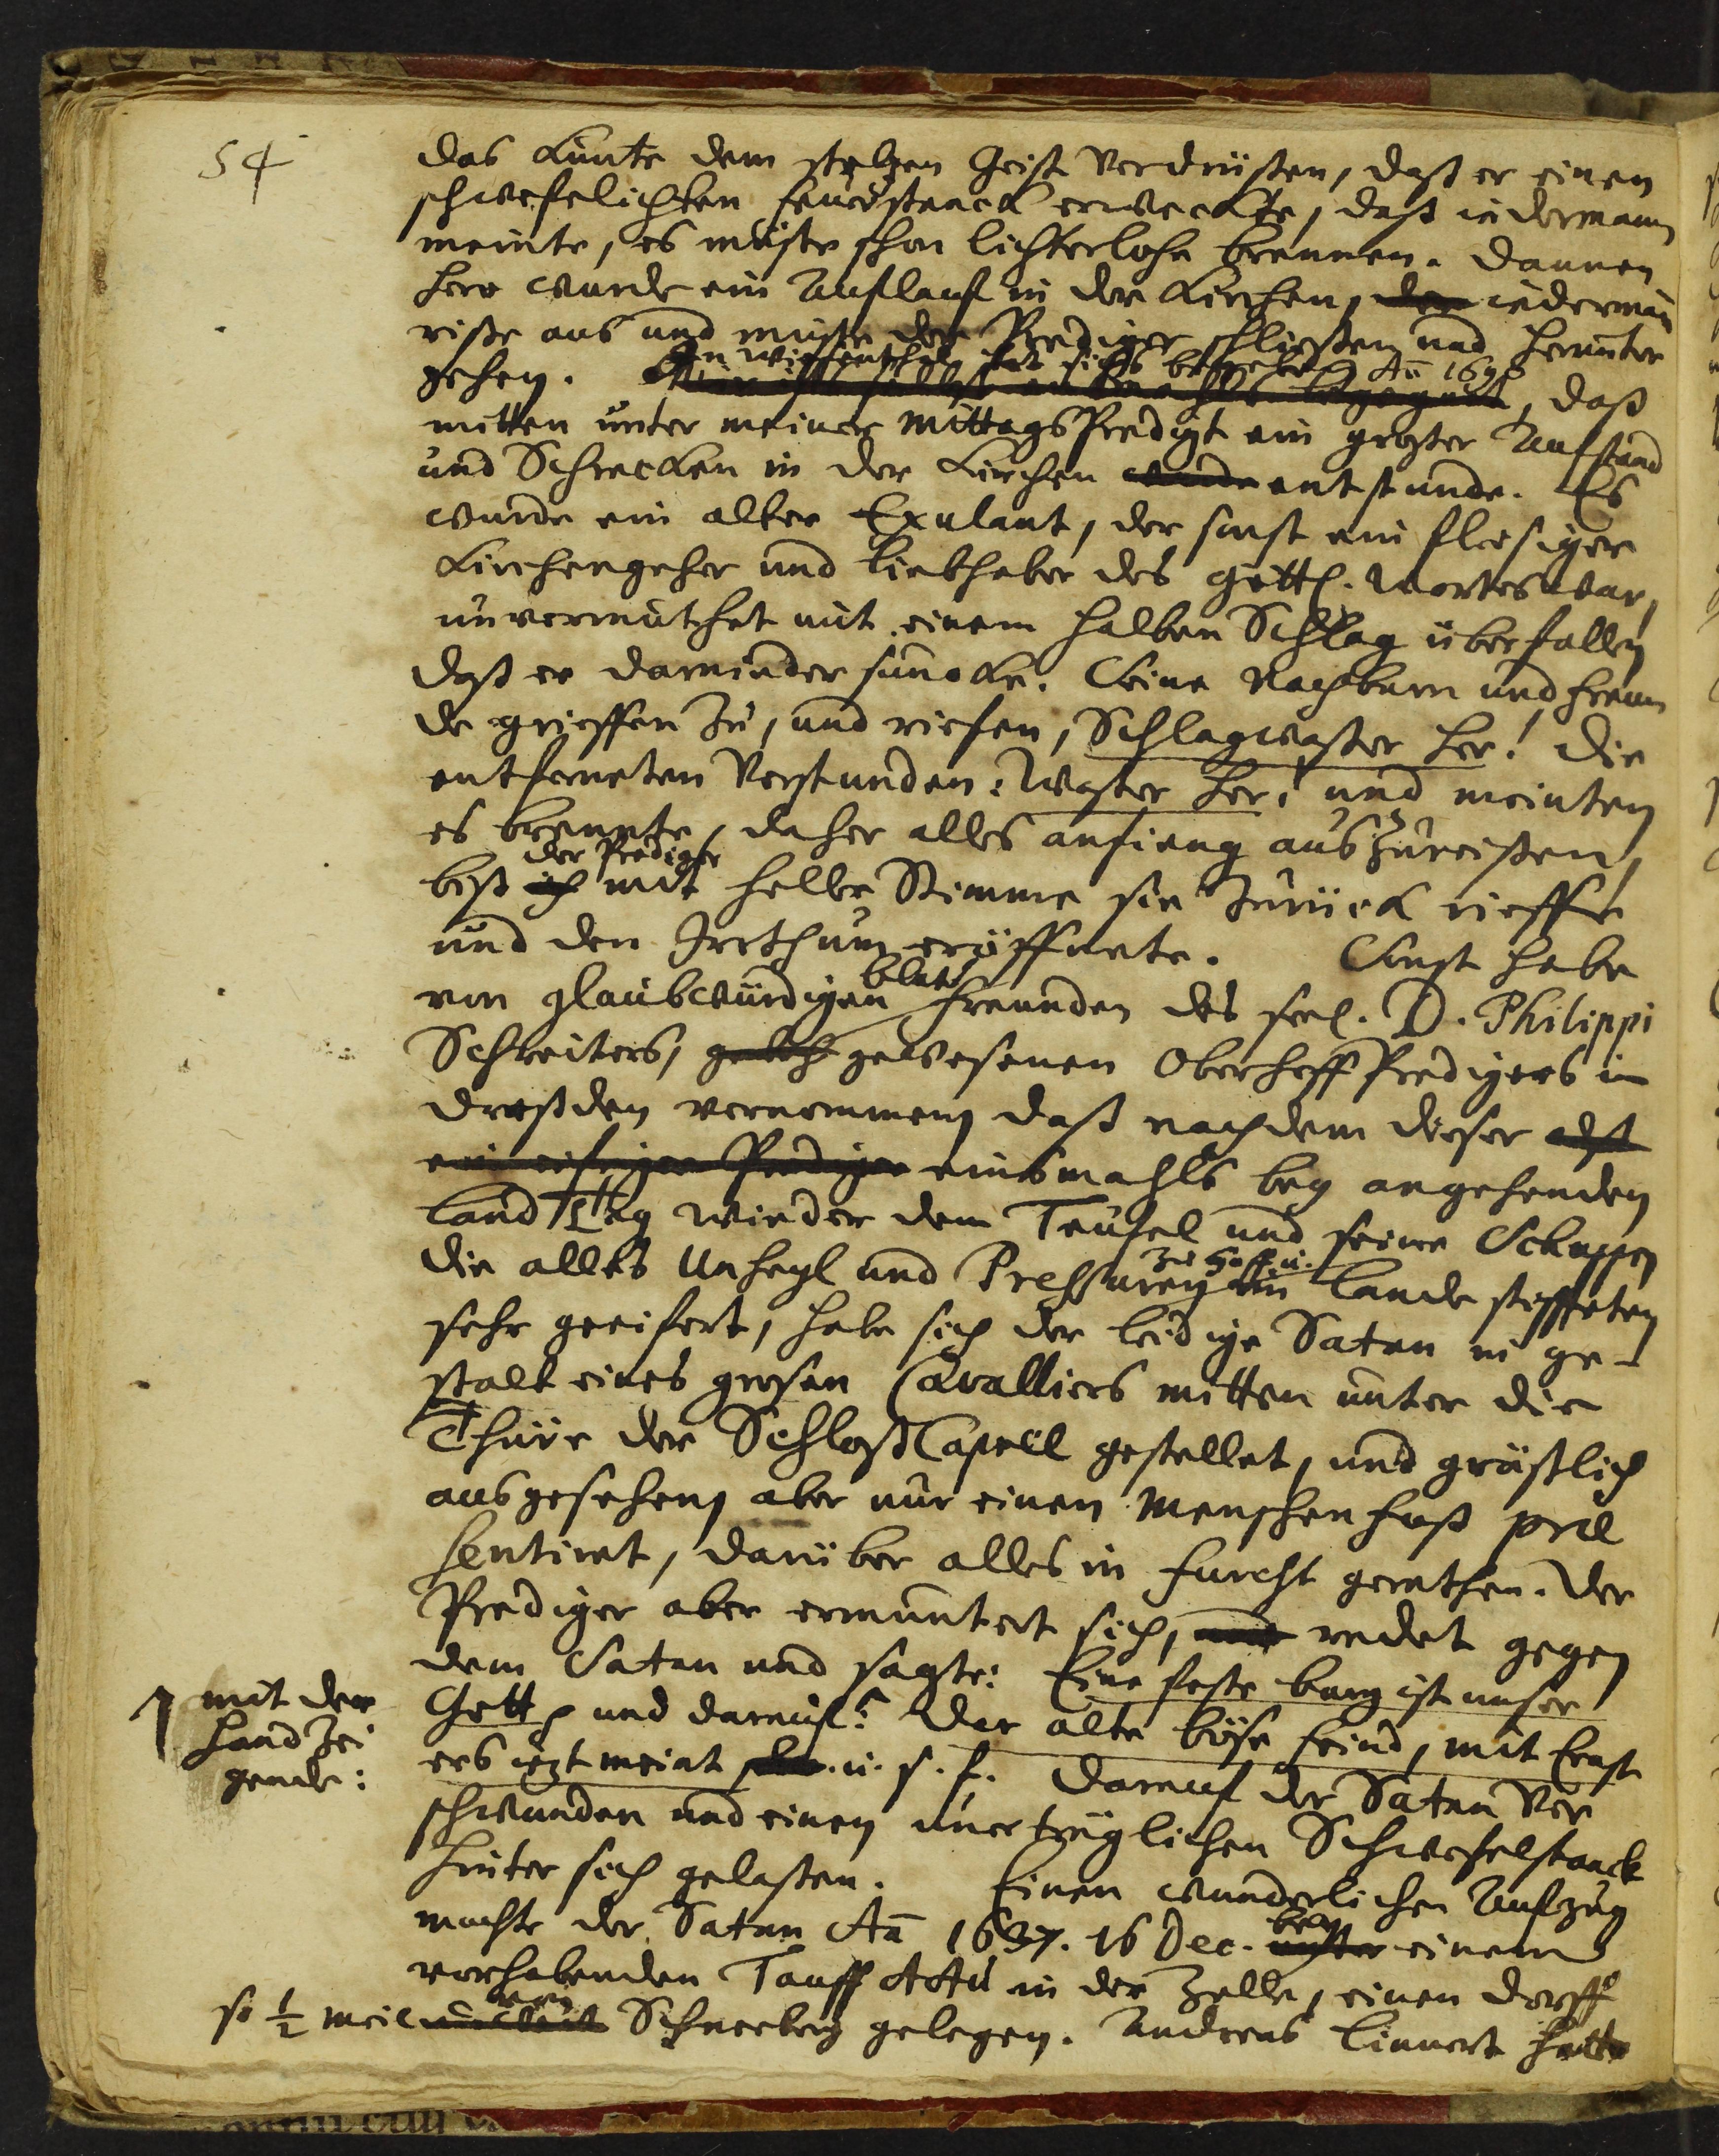 54
das kunte dem stolzen Geist verdrüßen, daß er einen
schwefelichten feuerstanck erweckte, daß iederman
meinte, es müste schon lichterlohe brennen. Dannen
hero wurde ein Aufflauff in der Kirchen, der iederman
riße aus und muste der Prediger schließen und herunter
In Wiesenthal hat sichs begeben Aō 1698
gehen. daß
mitten unter meiner MittagsPredigt ein großer Aufstand
und Schrecken in der Kirchen wurde entstunde. Es
wurde ein alter Exulant, der sonst ein fleißiger
Kirchengeher und liebhaber des göttl. Wortes war,
unvermuthet mit einem halben Schlag überfallen
daß er darnieder suncke. Seine Nachbarn und freun
de grieffen zu, und riefen, Schlagwaßer her! die
entferneten verstunden: Waßer her! und meinten
es brennte, daher alles anfieng auszureißen,
der Prediger
biß ich mit heller Stimme sie zurück rieffte
und den Irrthum eröffnete. Sonst habe
bluts
von glaubwürdigen freunden des seel. D. Philippi
Schreiters, gewesenen OberhoffPredigers in
Dreßden vernommen daß nachdem dieser alß
ein eifriger Prediger einsmahls bey angehenden
LandTag wieder dem Teufel und seine Schuppen
zu Hoff u.
die alles Unheyl und Pressuren im Lande stiffteten
sehr geeifert, habe sich der leidige Satan in ge-
stalt eines grosen Cavalliers mitten unter die
Thüre der SchloßCapell gestellet, und gräßlich
ausgesehen, aber nur einen Menschenfuß præ
sentiret, darüber alles in furcht gerathen. Der
Prediger aber ermuntert sich, und redet gegen
dem Satan und sagte: Eine feste burg ist unser
mit der
Hand zei
gende:
Gott und darauf: Der alte böse feind, mit Ernst
ers iezt meint u. s. f. Darauf der Satan ver
schwunden und einen unerträglichen Schwefelstanck
hinter sich gelaßen. Einen wunderlichen Aufzug
bey
machte der Satan Aō 1637. 16 Dec. unter einem
vorhabenden Tauff Actu in der Zelle, einen dorff
von
so ½ meil Schneeberg gelegen. Andreas Linnert hatte